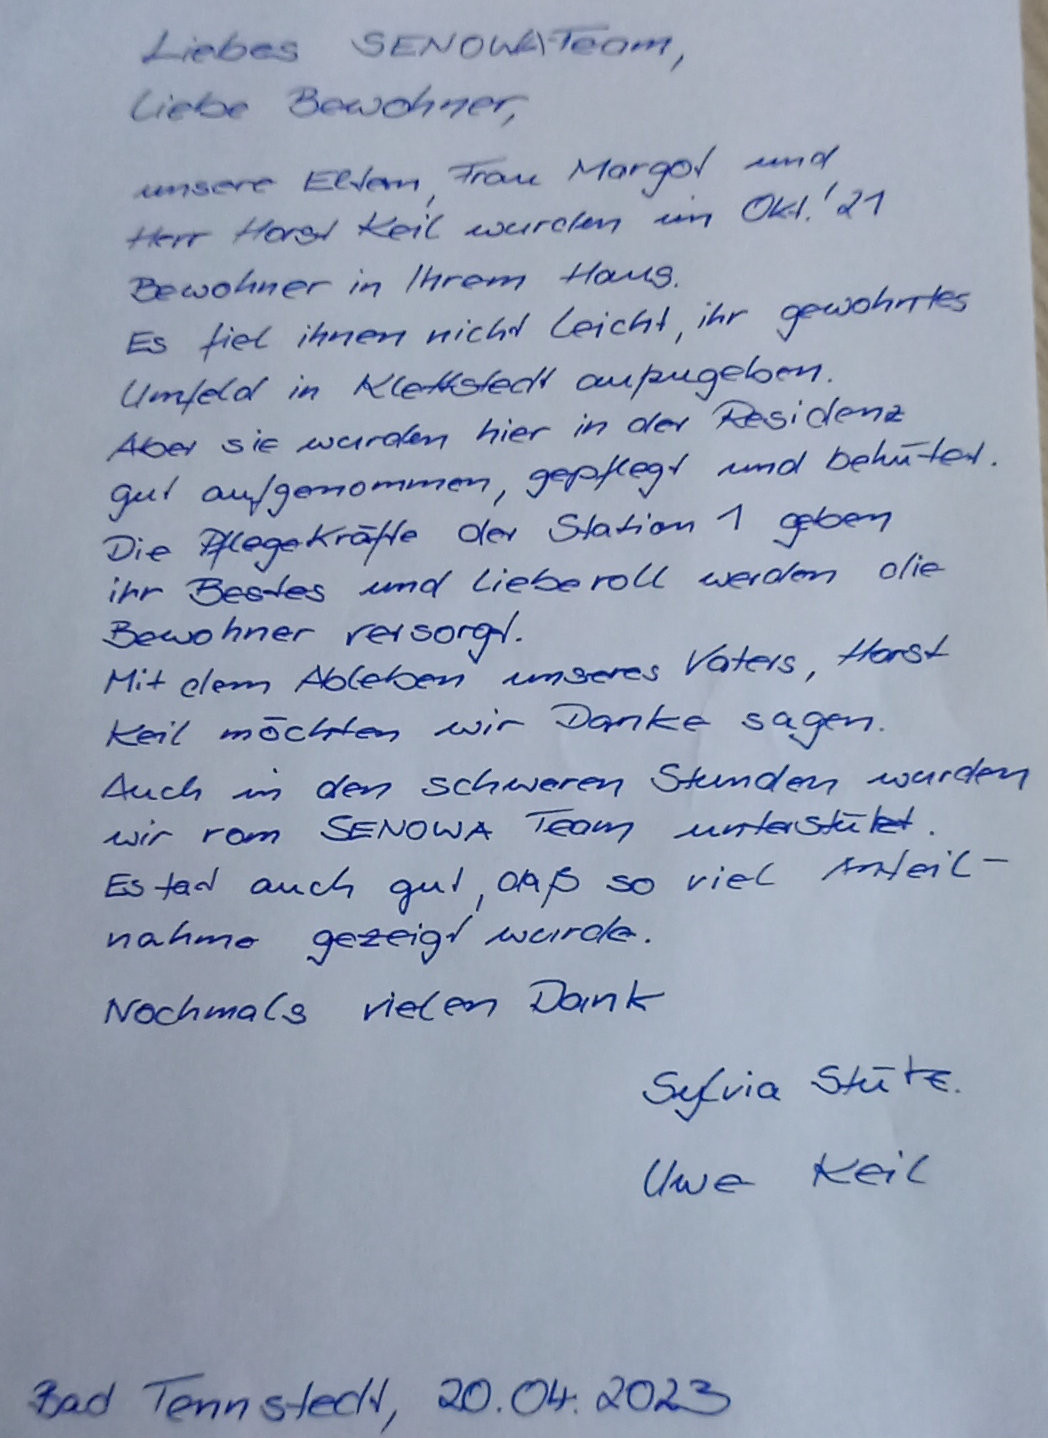 Liebes SENOWA-Team,
Liebe Bewohner,
unsere Eltern, Frau Margot und
Herr Horst Keil wurden im Okt.'21
Bewohner in Ihrem Haus.
Es fiel ihnen nicht leicht, ihr gewohntes
Umfeld in Klettstedt aufzugeben.
Aber sie wurden hier in der Residenz
gut aufgenommen, gepflegt und behütet.
Die Pflegekräfte der Station 1 geben
ihr Bestes und liebevoll werden die
Bewohner versorgt.
Mit dem Ableben unseres Vaters, Horst
Keil möchten wir Danke sagen.
Auch in den schweren Stunden wurden
wir vom SENOWA Team unterstützt.
Es tat auch gut, daß so viel Anteil-
nahme gezeigt wurde.
Nochmals vielen Dank
Sylvia Stütz.
Uwe Keil
Bad Tennstedt, 20.04.2023